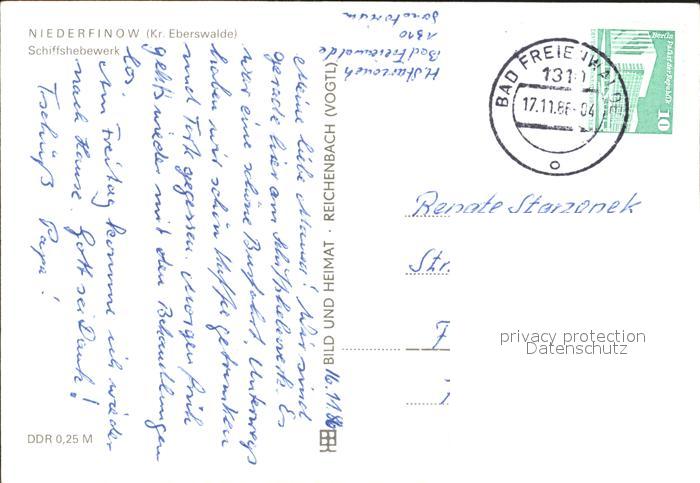 NIEDERFINOW (Kr. Eberswalde)
Schiffshebewerk
H. Starzonek
Bad Freienwalde
1310
Sanatorium
16.11.86
Meine liebe Mama! Wir sind
gerade hier am Schiffshebewerk. Es
war eine schöne Busfahrt. Unterwegs
haben wir schön Kaffee getrunken
und Torte gegessen. Morgen früh
gehts wieder mit den Behandlungen
los.
Am Freitag komme ich wieder
nach Hause. Gott sei Dank!
Tschüß Papa!
BILD UND HEIMAT · REICHENBACH (VOGTL)
DDR 0,25 M
BAD FREIENWALDE
1310
17.11.86-04
Berlin
Palast der Republik
10
Renate Starzonek
Str.
privacy protection
Datenschutz